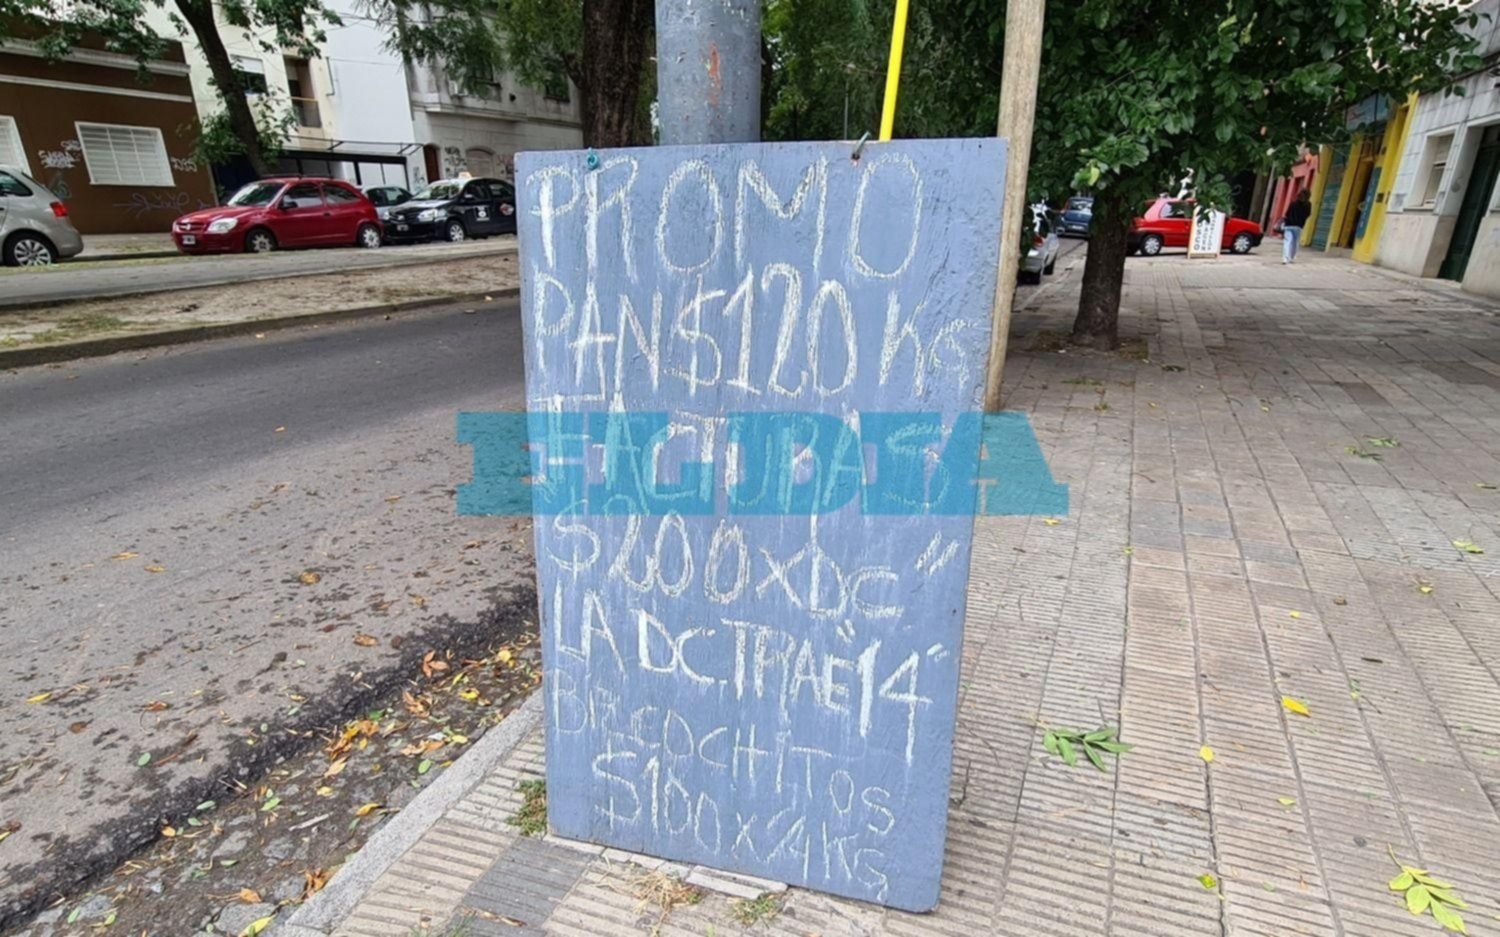 PROMO
PAN $120 KG
FACTURAS
$200 x DC"
LA DC TRAE "14"
$100 x
EL DIA